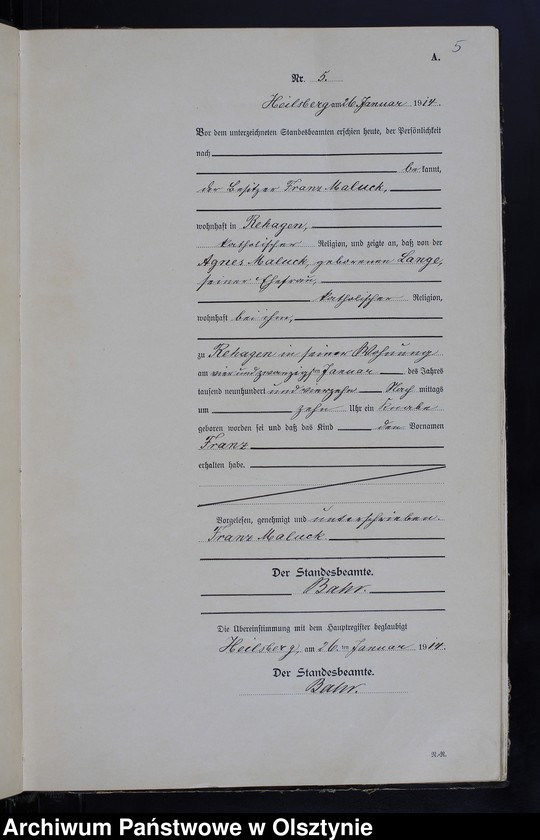 5
A.
Nr. 5.
Heilsberg am 26. Januar 1914.
Vor dem unterzeichneten Standesbeamten erschien heute, der Persönlichkeit
nach
bekannt,
der Besitzer Franz Maluck,
wohnhaft in Rehagen,
katholischer Religion, und zeigte an, daß von der
Agnes Maluck, geborenen Lange,
seiner Ehefrau,
katholischer Religion,
wohnhaft bei ihm,
zu Rehagen in seiner Wohnung
am vierundzwanzigsten Januar des Jahres
tausend neunhundert und vierzehn Nach mittags
um zehn Uhr ein Knabe
geboren worden sei und daß das Kind den Vornamen
Franz
erhalten habe.
Vorgelesen, genehmigt und unterschrieben.
Franz Maluck.
Der Standesbeamte.
Bahr.
Die Übereinstimmung mit dem Hauptregister beglaubigt
Heilsberg, am 26. ten Januar 1914.
Der Standesbeamte.
Bahr.
R.-R.
Archiwum Państwowe w Olsztynie